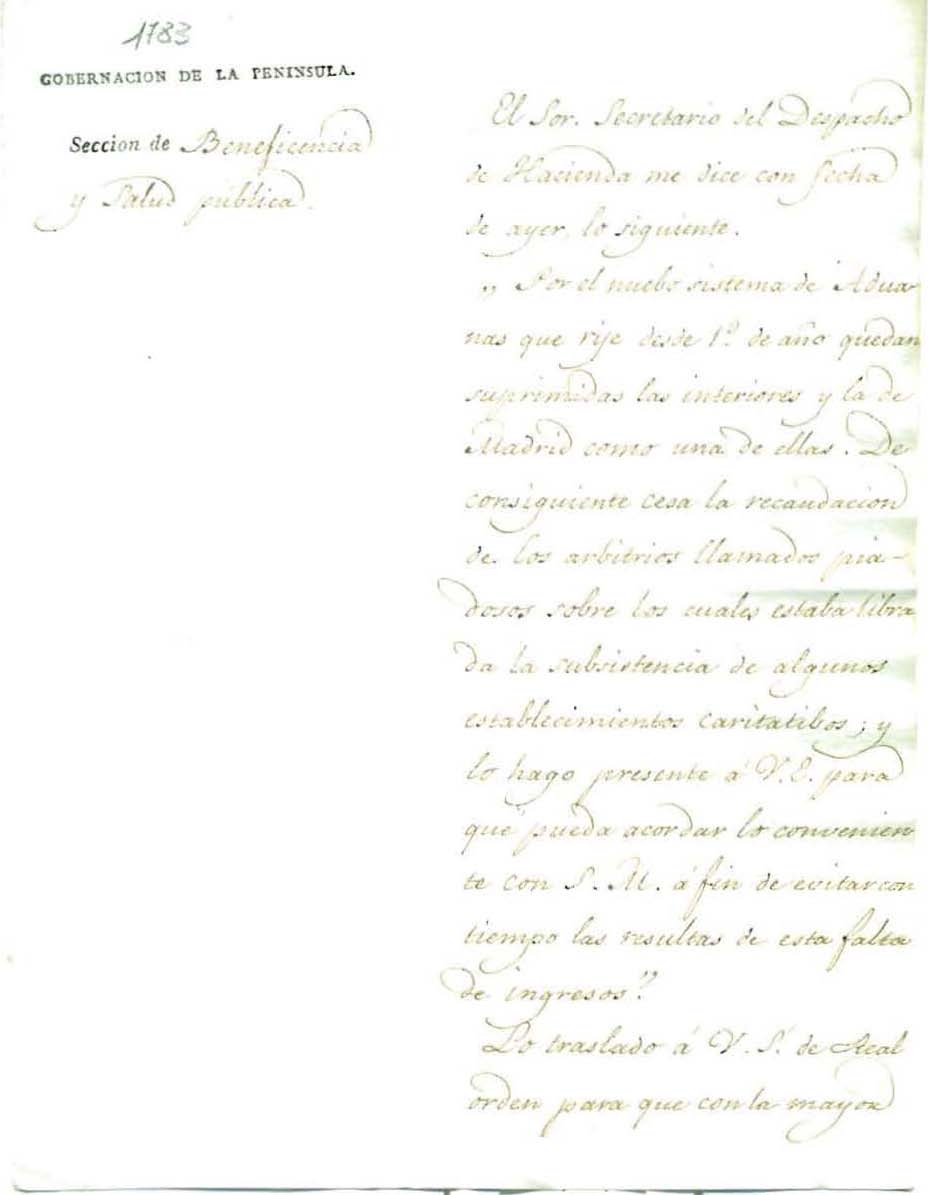 1783
GOBERNACION DE LA PENINSULA.
Seccion de Beneficencia
y Salud pública.
El Sor. Secretario del Despacho
de Hacienda me dice con fecha
de ayer, lo siguiente.
„ Por el nuebo sistema de Adua-
nas que rije desde 1º. de año quedan
suprimidas las interiores y la de
Madrid como una de ellas. De
consiguiente cesa la recaudacion
de los arbitrios llamados pia-
dosos sobre los cuales estaba libra-
da la subsistencia de algunos
establecimientos caritatibos; y
lo hago presente á V.E. para
que pueda acordar lo convenien-
te con S. M. á fin de evitar con
tiempo las resultas de esta falta
de ingresos."
Lo traslado á V. S. de Real
orden para que con la mayor